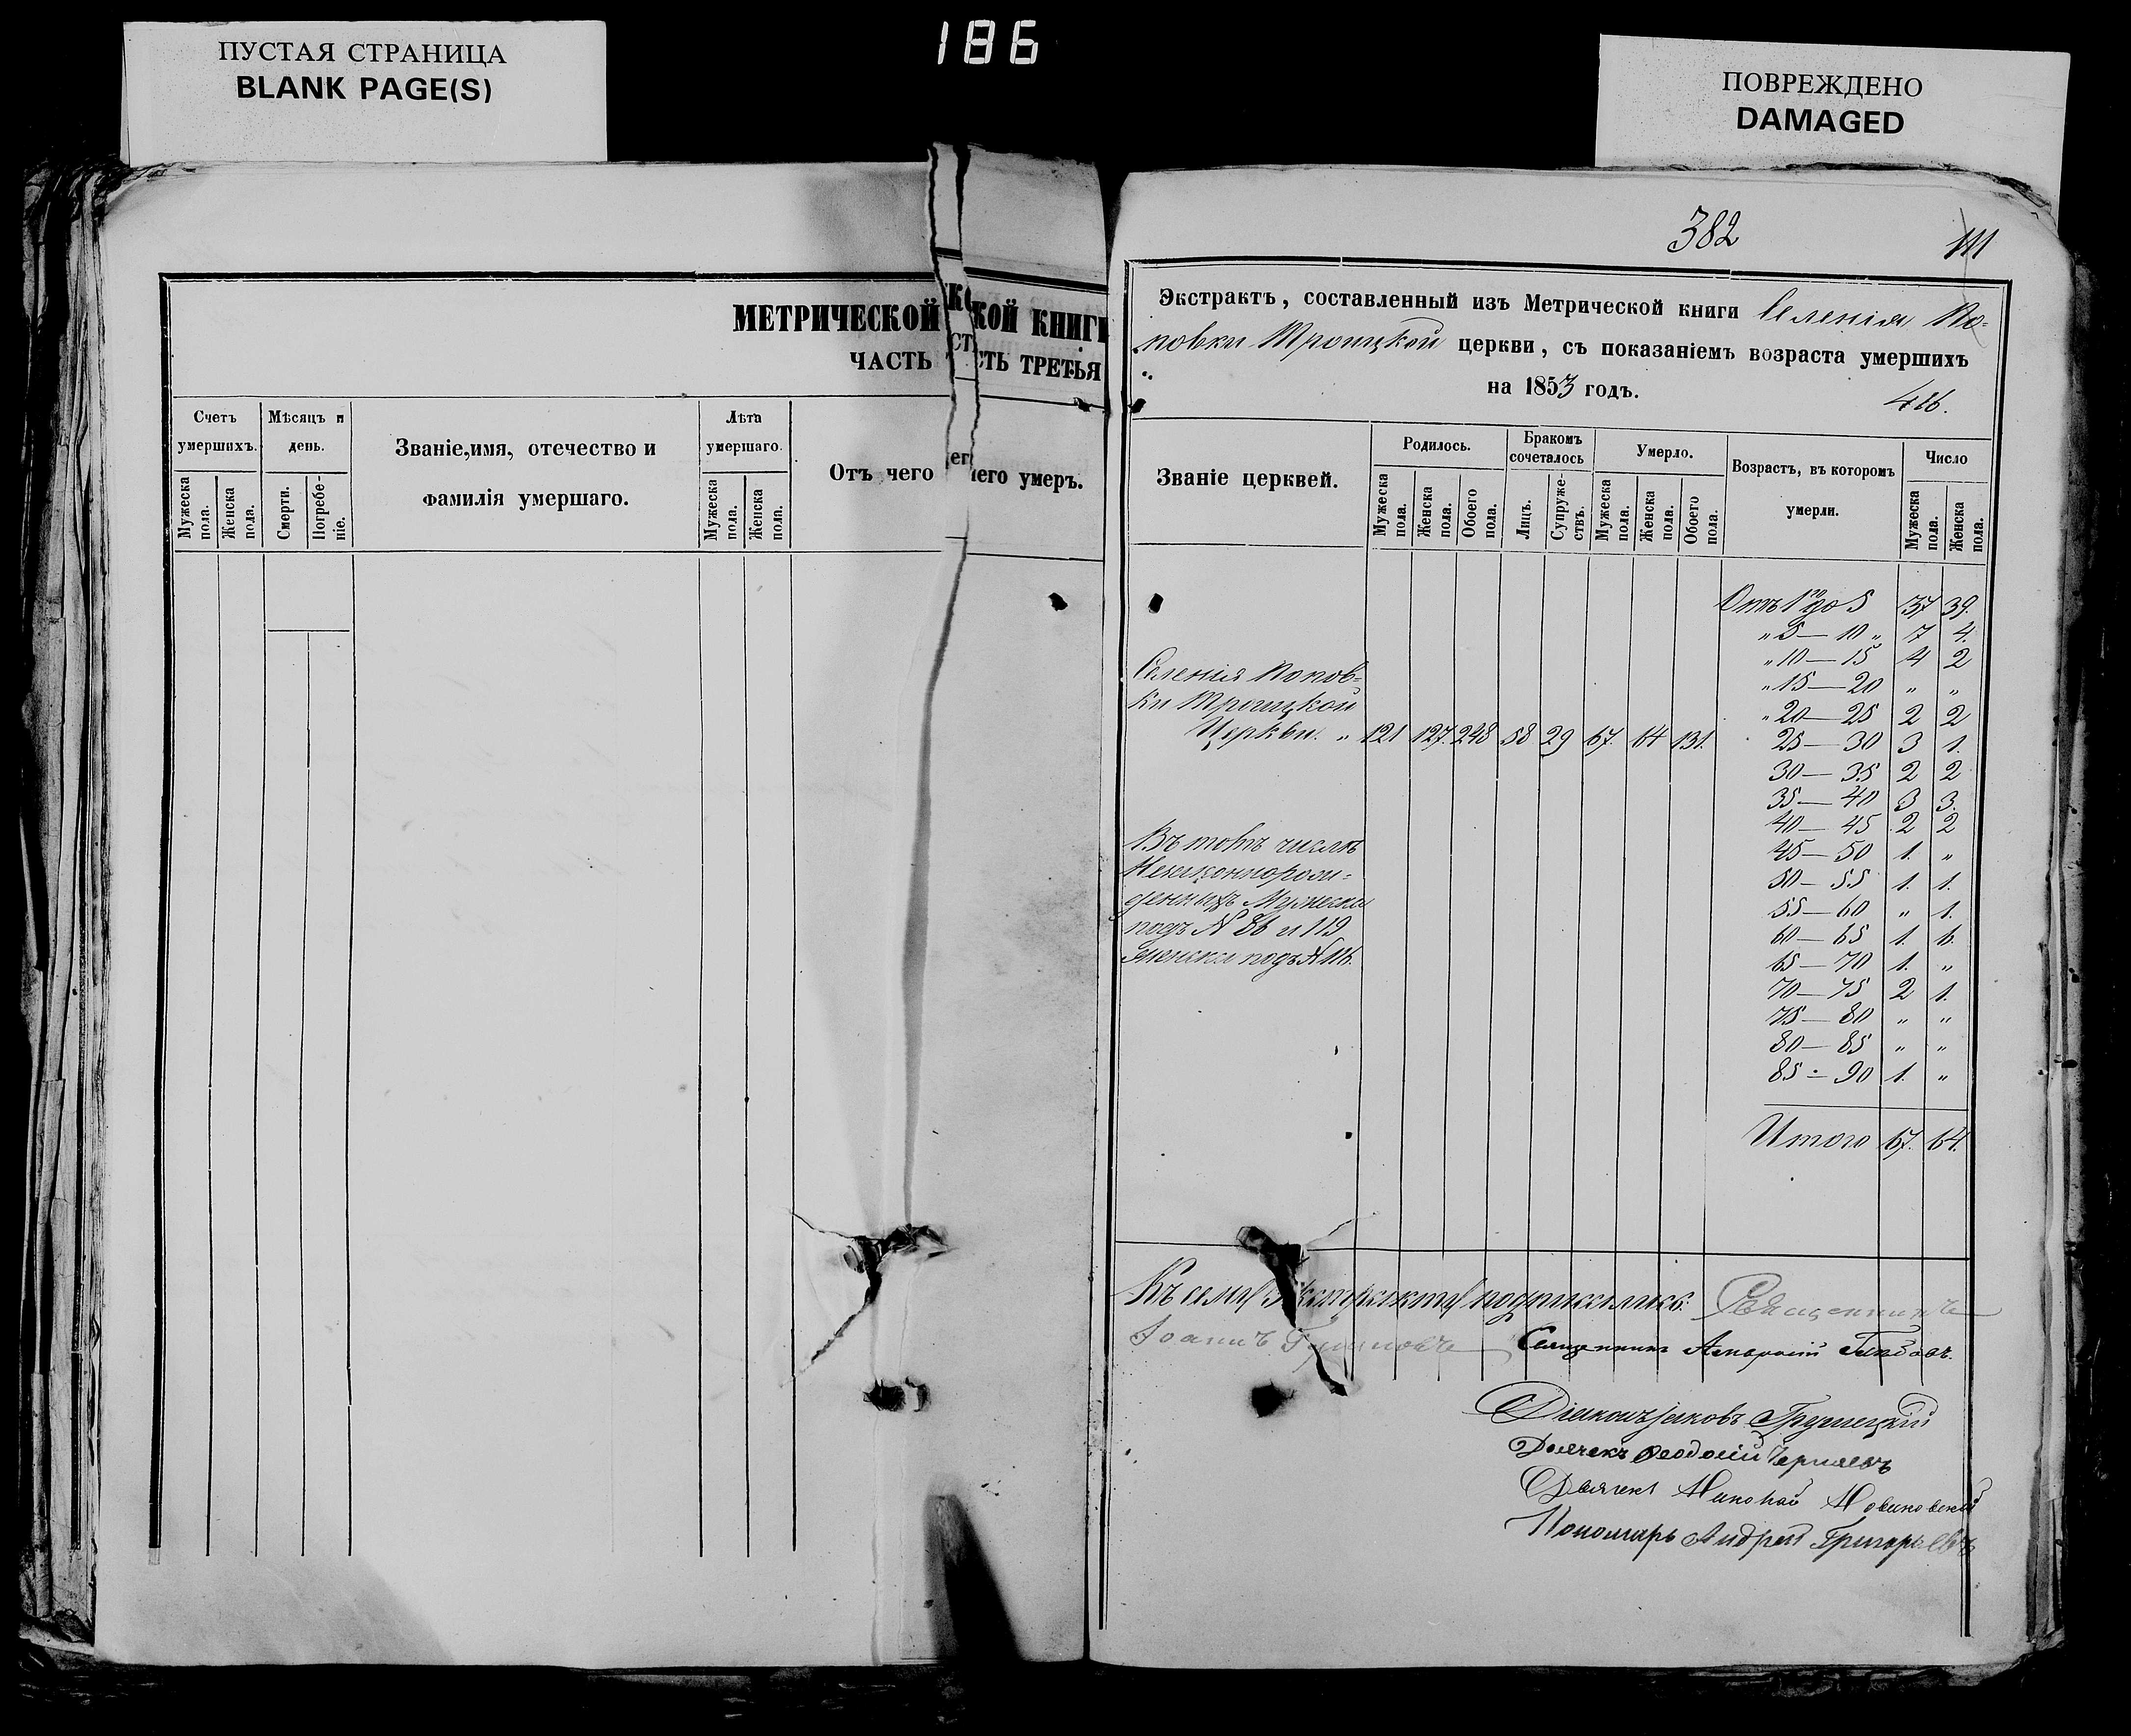 ПУСТАЯ СТРАНИЦА
BLANK PAGE(S)
186
ПОВРЕЖДЕНО
DAMAGED
МЕТРИЧЕСКОЙ КОЙ КНИГИ
ЧАСТЬ СТЬ ТРЕТЬЯ
Счетъ умершихъ.
Мужеска пола.
Женска пола.
Мѣсяцъ и день.
Смерти.
Погребе-
ніе.
Званіе, имя, отечество и
фамилія умершаго.
Лѣта умершаго.
Мужеска пола.
Женска пола.
Отъ чего
чего умеръ.
382
111
Экстрактъ, составленный изъ Метрической книги Селенія По-
повки Троицкой церкви, съ показаніемъ возраста умершихъ
на 1853 годъ.
Званіе церквей.
Родилось.
Мужеска пола.
Женска пола.
Обоего пола.
Бракомъ сочеталось
Лицъ.
Супруже-
ствъ.
Умерло.
Мужеска пола.
Женска пола.
Обоего пола.
Возрастъ, въ которомъ
умерли.
Число
Мужеска пола.
Женска пола.
Отъ 1го до 5 37 39.
„ 5 — 10 „ 7 4.
„ 10 — 15 4 2
„ 15 — 20 „ „
„ 20 — 25 2 2
25 — 30 3 1.
30 — 35 2 2
35 — 40 3 3.
40 — 45 2 2
45 — 50 1. „
50 — 55 1. 1.
55 — 60 „ 1.
60 — 65 1. 6.
65 — 70 1. „
70 — 75 2 1.
75 — 80 „ „
80 — 85 „ „
85 — 90 1. „
Итого 67. 64.
Селенія Попов-
ки Троицкой
Церкви. „ 121 127. 248 58 29 67. 64 131.
Въ томъ числѣ
Незаконнорож-
денныхъ Мужеска
подъ № 86 и 119
Женска подъ № 116.
Къ сему Экстракту подписались: Священникъ
Іоаннъ
Священникъ
Діаконъ Іаковъ Грушецкій
Дьячекъ Ѳеодосій Черняевъ
Дьячекъ Николай Новиковскій
Пономарь Андрей Григорьевъ